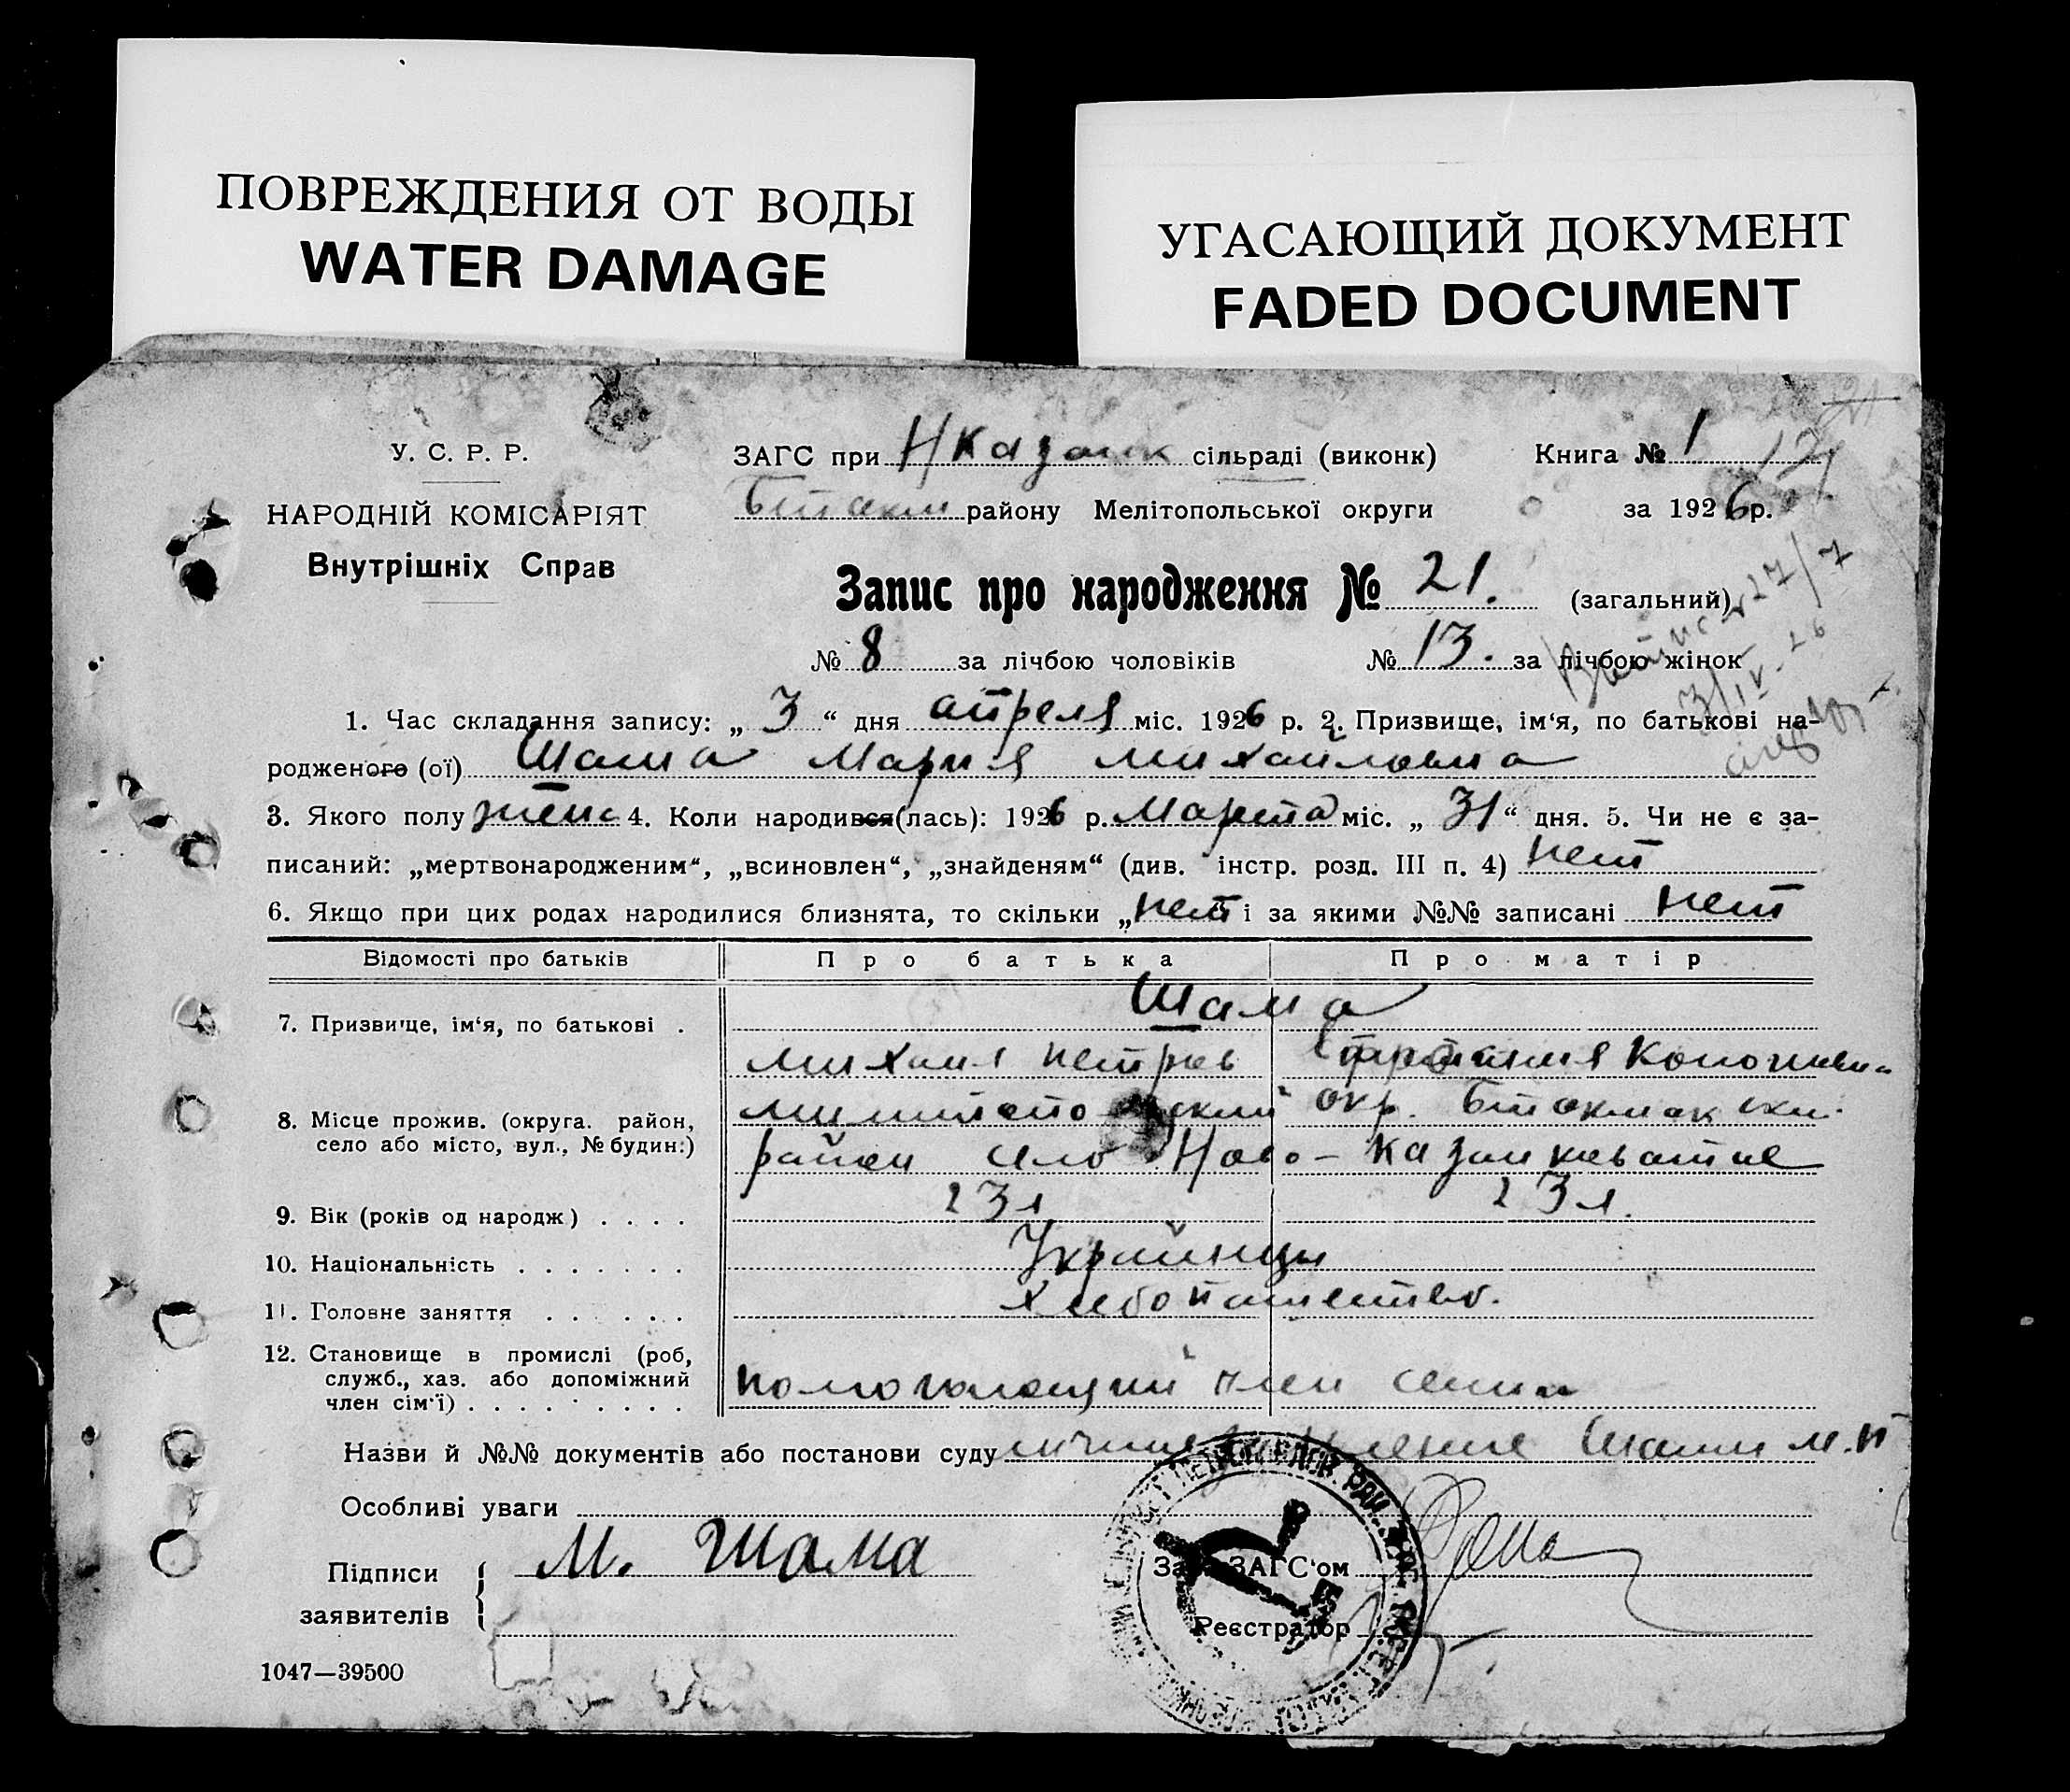 ПОВРЕЖДЕНИЯ ОТ ВОДЫ
WATER DAMAGE
УГАСАЮЩИЙ ДОКУМЕНТ
FADED DOCUMENT
У. С. Р. Р.
НАРОДНІЙ КОМІСАРІЯТ
Внутрішніх Справ
ЗАГС при Н Казанк сільраді (виконк) Книга № 1
Бтокм району Мелітопольської округи за 1926 р.
Запис про народження № 21. (загальний)
№ 8 за лічбою чоловіків № 13. за лічбою жінок
27/7
3/IV-26
1. Час складання запису: „ 3 “ дня апреля міс. 1926 р. 2. Призвище, ім‘я, по батькові на-
родженого (ої) Шама Мария Михайловна
3. Якого полу женс 4. Коли народився(лась): 1926 р. Марта міс. „ 31 “ дня. 5. Чи не є за-
писаний: „мертвонародженим“, „всиновлен“, „знайденям“ (див. інстр. розд. III п. 4) нет
6. Якщо при цих родах народилися близнята, то скільки „ нет і за якими №№ записані нет
Відомості про батьків Про батька Про матір
7. Призвище, ім‘я, по батькові . Шама
Михаил Петров
8. Місце прожив. (округа. район, село або місто, вул., № будин.) окр. Бтокмакски
район село Ново-
9. Вік (років од народж) . . . . 23 л 23 л.
10. Національність . . . . . . . Украинцы
11. Головне заняття . . . . . . Хлебопашество.
12. Становище в промислі (роб, служб., хаз. або допоміжний член сім‘ї) . . . . . . . . . помогающий член семи
Назви й №№ документів або постанови суду Шами М.П
Особливі уваги
Підписи заявителів М. Шама
Зав. ЗАГС‘ом
Реєстратор
1047—39500